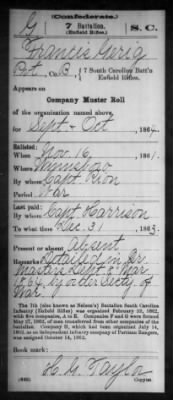 (Confederate.)
G 7 Battalion. S. C.
(Enfield Rifles).
Francis Garig
Pvt, Co. B, 7 South Carolina Batt'n
Enfield Rifles.
Company Muster Roll
of the organization named above,
for Sept & Oct, 186
Enlisted:
When Nov. 16, 186
Where Winnsboro
By whom Capt. Rion
Period War
Last paid:
By whom Capt Harrison
To what time Dec. 31, 1863.
Present or absent Absent
Remarks: Detailed in Qr.
Masters Dept. 8 Mar
1864 by order Secty. of
War.
The 7th (also known as Nelson's) Battalion South Carolina
Infantry (Enfield Rifles) was organized February 22, 1862,
with five companies, A to E. Companies F and G were formed
May, 1862, of men transferred from other companies of the
battalion. Company H, which had been organized July 14,
1862, as an independent Company of Partisan Rangers,
was assigned October 14, 1862.
Book mark:
H. G. Taylor
(642) Copyist.